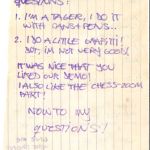 QUESTIONS:
1. I'M A TAGER, I DO IT
WITH CANS & PENS..
2. I DO A LITTLE GRAFFITI!
BUT, I'M NOT VERY GOOD!
IT WAS NICE THAT YOU
LIKED OUR DEMO!
I ALSO LIKE THE CHESS-ZOOM
PART!
NOW TO MY
QUESTIONS!